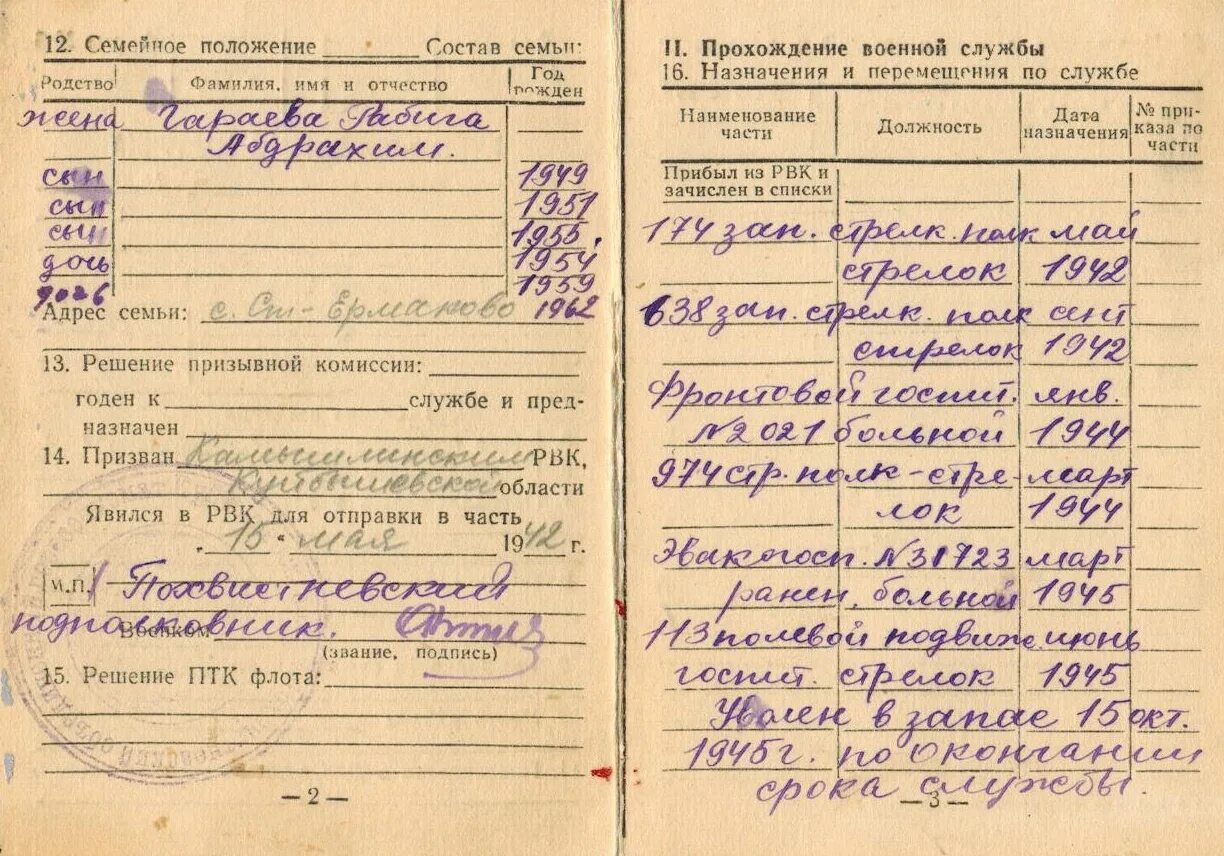 12. Семейное положение Состав семьи:
Родство Фамилия, имя и отчество Год рожден
жена Гараева Рабига
Абдрахим.
сын 1949
сын 1951
сын 1955.
дочь 1954
1959
дочь
Адрес семьи: с. Ст-Ермаково 1962
13. Решение призывной комиссии:
годен к службе и пред-
назначен
14. Призван Камышлинским РВК,
Куйбышевской области
Явился в РВК для отправки в часть
„ 15 “ мая 1942 г.
М.П. Похвистневский
подполковник.
Военком
(звание, подпись)
15. Решение ПТК флота:
— 2 —
II. Прохождение военной службы
16. Назначения и перемещения по службе
Наименование части Должность Дата назначения № при-каза по части
Прибыл из РВК и
зачислен в списки
174 зап. стрелк. полк май
стрелок 1942
638 зап. стрелк. полк сент
стрелок 1942
Фронтовой госпит. янв.
№2021 больной 1944
974 стр. полк - стре- март
лок 1944
Эвакогосп. №31723 март
ранен, больной 1945
113 полевой подвиж. июнь
госпит. стрелок 1945
Уволен в запас 15 окт.
1945 г. по окончании
срока службы.
— 3 —